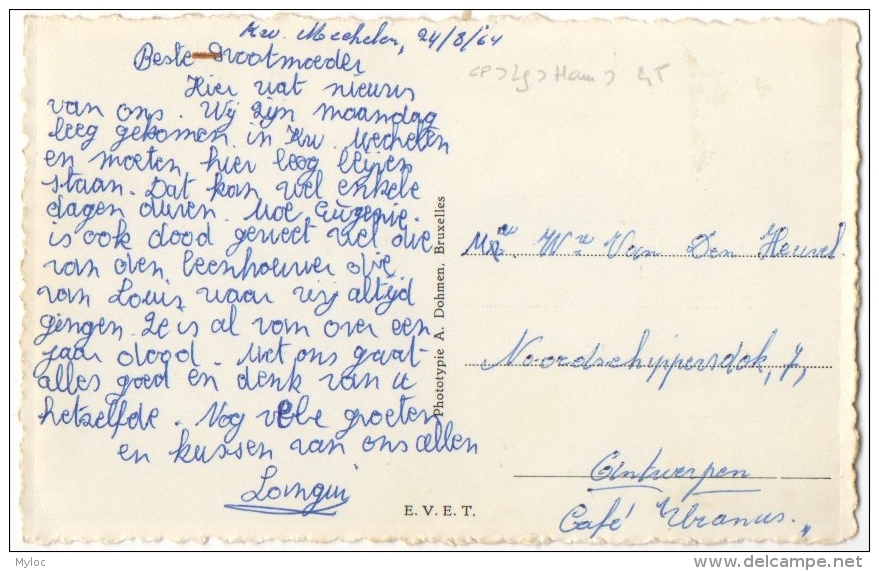 Kw. Mechelen, 24/8/64
Beste Grootmoeder
Hier wat nieuws
van ons. Wij zijn maandag
leeg gekomen in Kw. Mechelen
en moeten hier leeg blijven
staan. Dat kan wel enkele
dagen duren. Moe Eugenie.
is ook dood geweet wel die
van den beenhouwer die
van Louis waar wij altijd
gingen. Ze is al van over een
jaar dood. Met ons gaat
alles goed en denk van u
hetzelfde. Nog vele groeten
en kussen van ons allen
CP > Lg > Ham >
Phototypie A. Dohmen, Bruxelles
E.V.E.T.
Wwe Van Den Heuvel.
Noordschippersdok, 7,
Antwerpen
Café Uranus.
Myloc
www.delcampe.net